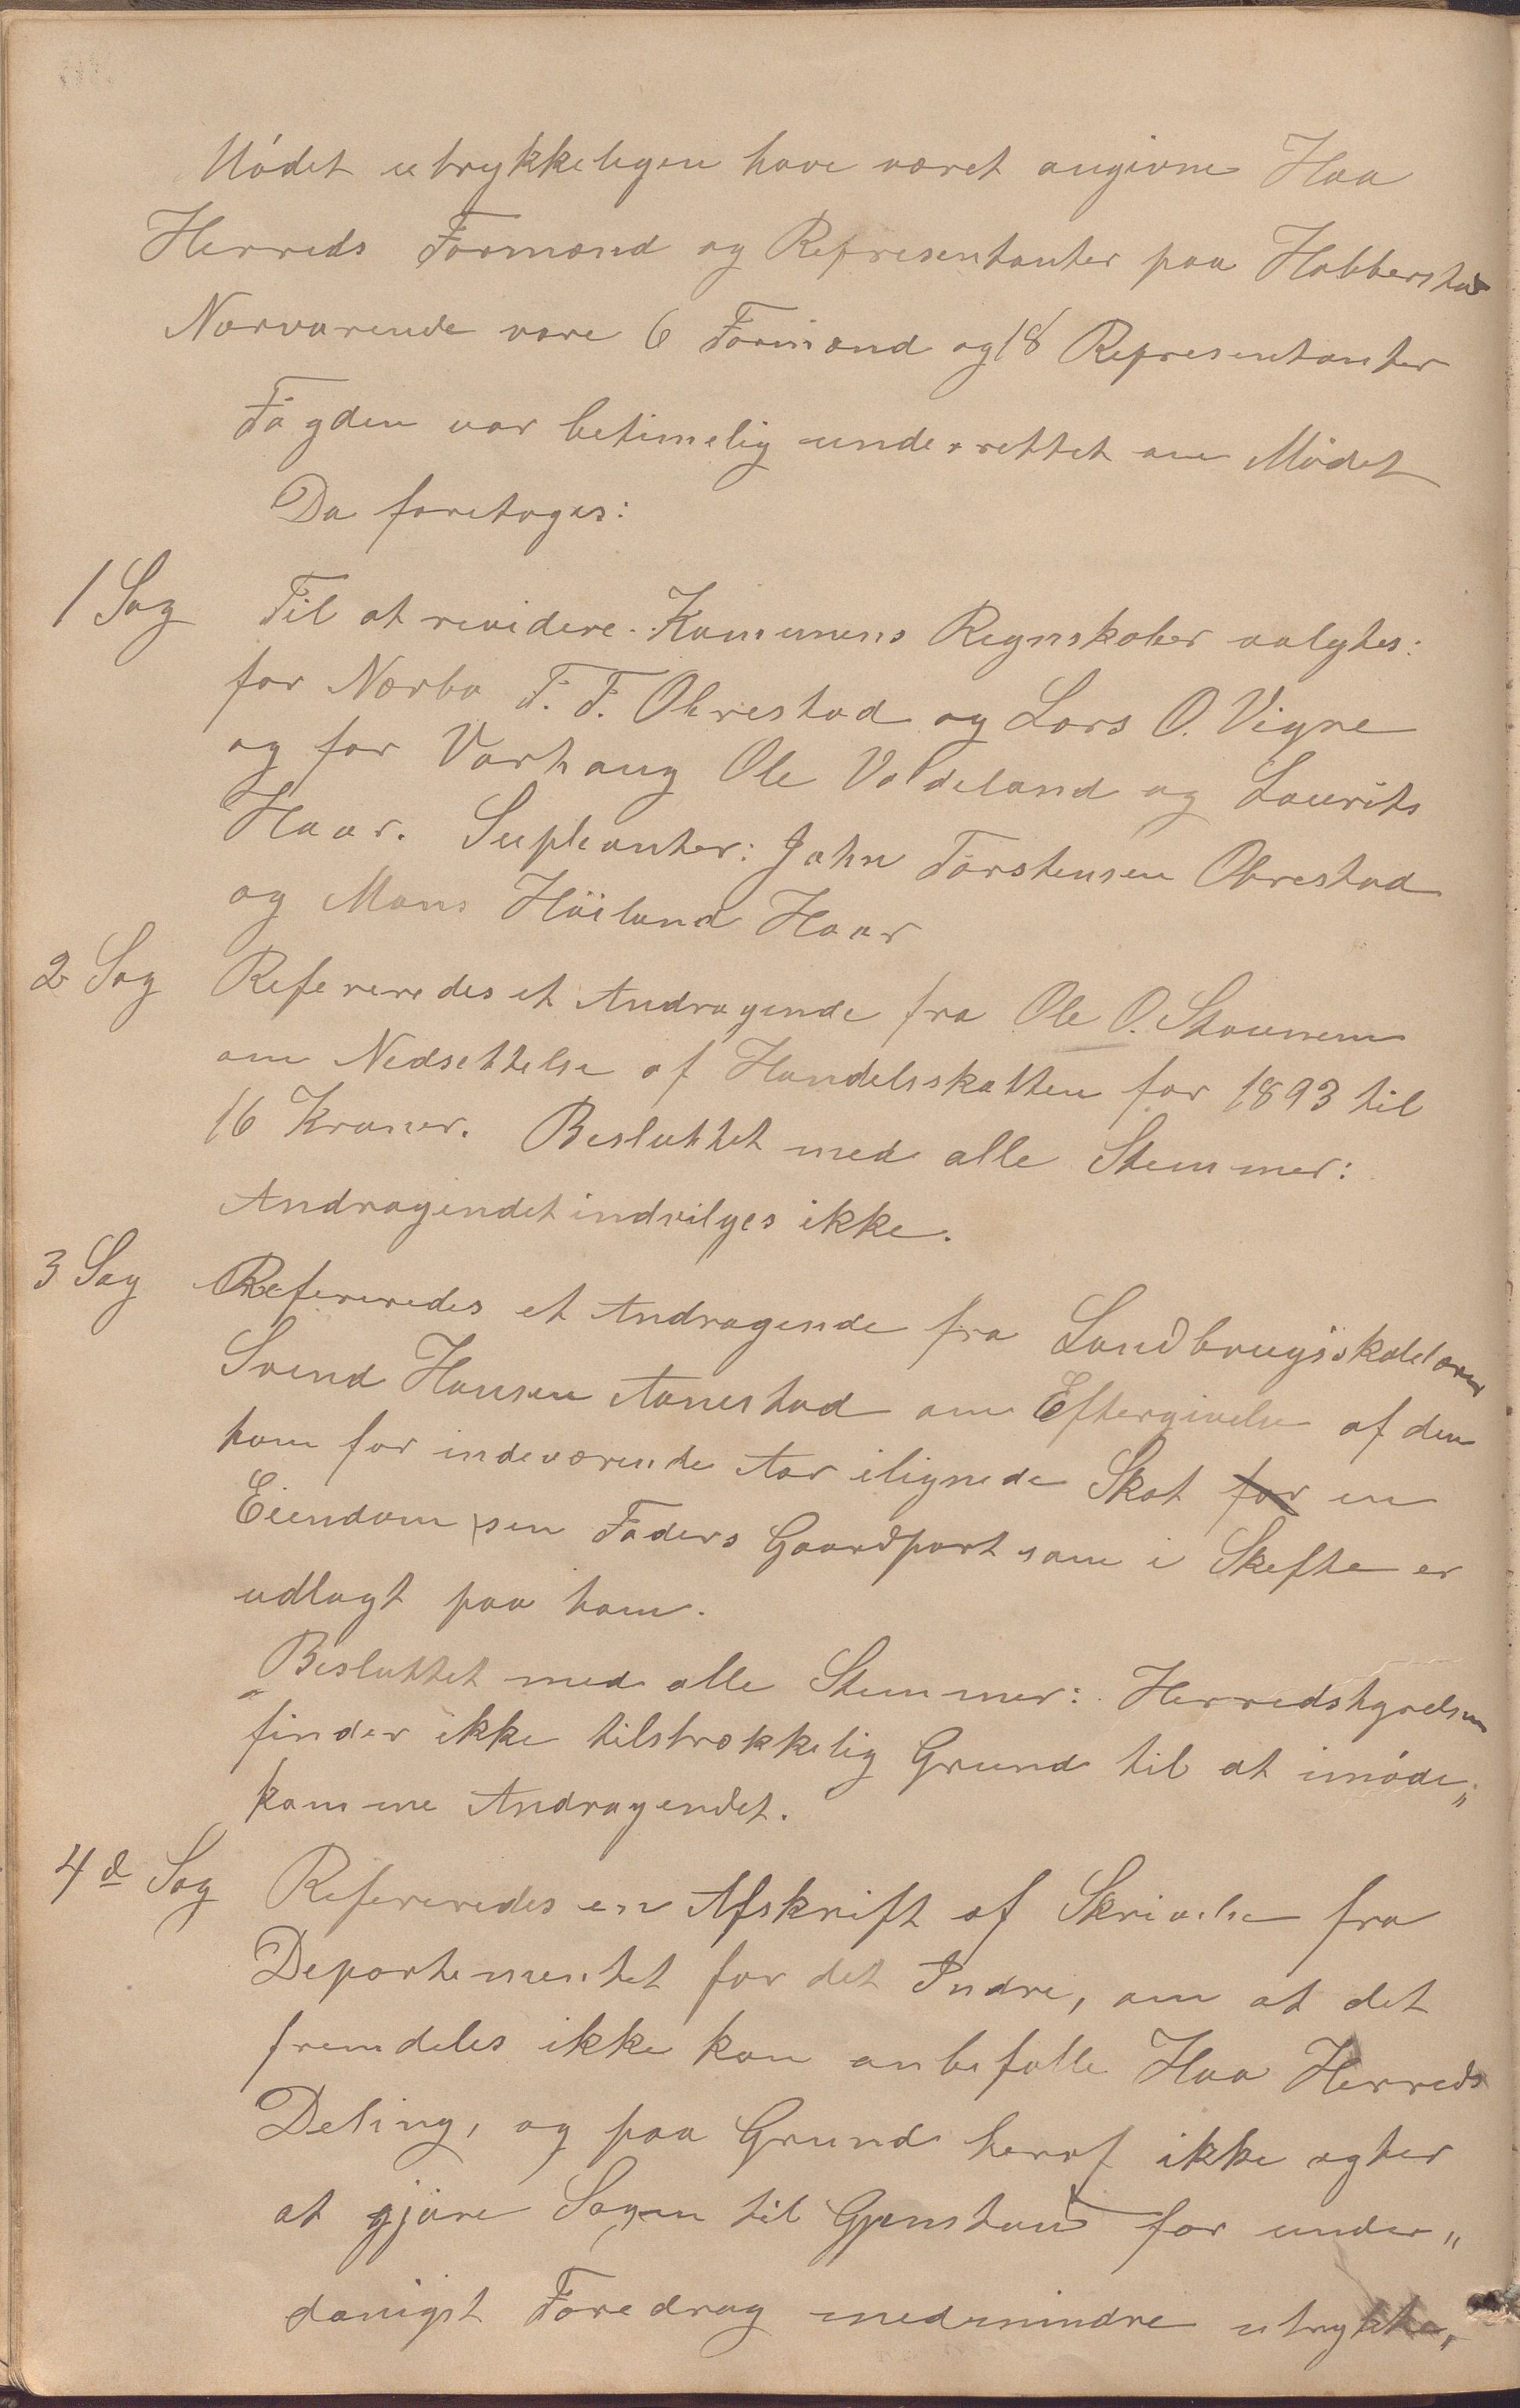 Mödet utrykkeligen have været angivne Haa
Herreds Formænd og Representanter paa Hobberstad
Nærværende vare 6 Formænd og 18 Representanter
Fögden var betimelig underrettet om Mödet
Da foretoges:
1 Sag Til at revidere Komunens Regnskaber valgtes:
for Nærbø T. T. Obrestad og Lars O. Vigre
og for Varhaug Ole Valdeland og Laurits
Haar. Supleanter: John Torstensen Obrestad
og Mons Höiland Haar
2 Sag Refereredes et Andragende fra Ole O. Stavnem
om Nedsettelse af Handelsskatten for 1893 til
16 Kroner. Besluttet med alle Stemmer:
Andragendet indvilges ikke.
3 Sag Refereredes et Andragende fra Landbrugsskolelærer
Svend Hansen Aanestad om Eftergivelse af den
ham for indeværende Aar ilignede Skat for en
Eiendom sin Faders Gaardpart som i Skefte er
udlagt paa ham.
Besluttet med alle Stemmer: Herredstyrelsen
finder ikke tilstrækkelig Grund til at imöde„
komme Andragendet.
4d Sag Refereredes en Afskrift af Skrivelse fra
Departementet for det Indre, om at det
fremdeles ikke kan anbefalle Haa Herreds
Deling, og paa Grund heraf ikke agter
at gjöre Sagen til Gjenstand for under„
danigst Foredrag medmindre utrykke„